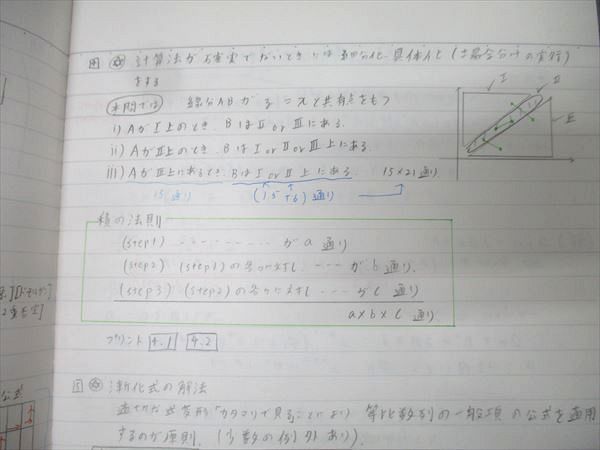 図 ☆ 計算法が確実でないときには細分化・具体化 (=場合分けの実行)
をする
I
II
III
本問では 線分ABが y=xと共有点をもつ
i) AがI上のとき、BはII or IIIにある.
ii) AがII上のとき、BはI or II or III上にある.
iii) AがIII上にあるとき、BはI or II上にある. 15×21通り
15通り (15+6)通り
積の法則
(step1) ‥‥‥‥‥ がa通り
(step2) (step1)の各々に対し ‥‥ がb通り.
(step3) (step2)の各々に対し ‥‥ がc通り
a×b×c通り
プリント 4.1 4.2
図 ☆ 漸化式の解法
適切な式変形「カタマリで見る」ことにより 等比数列の一般項の公式を適用
するのが原則. (少数の例外あり).
公式